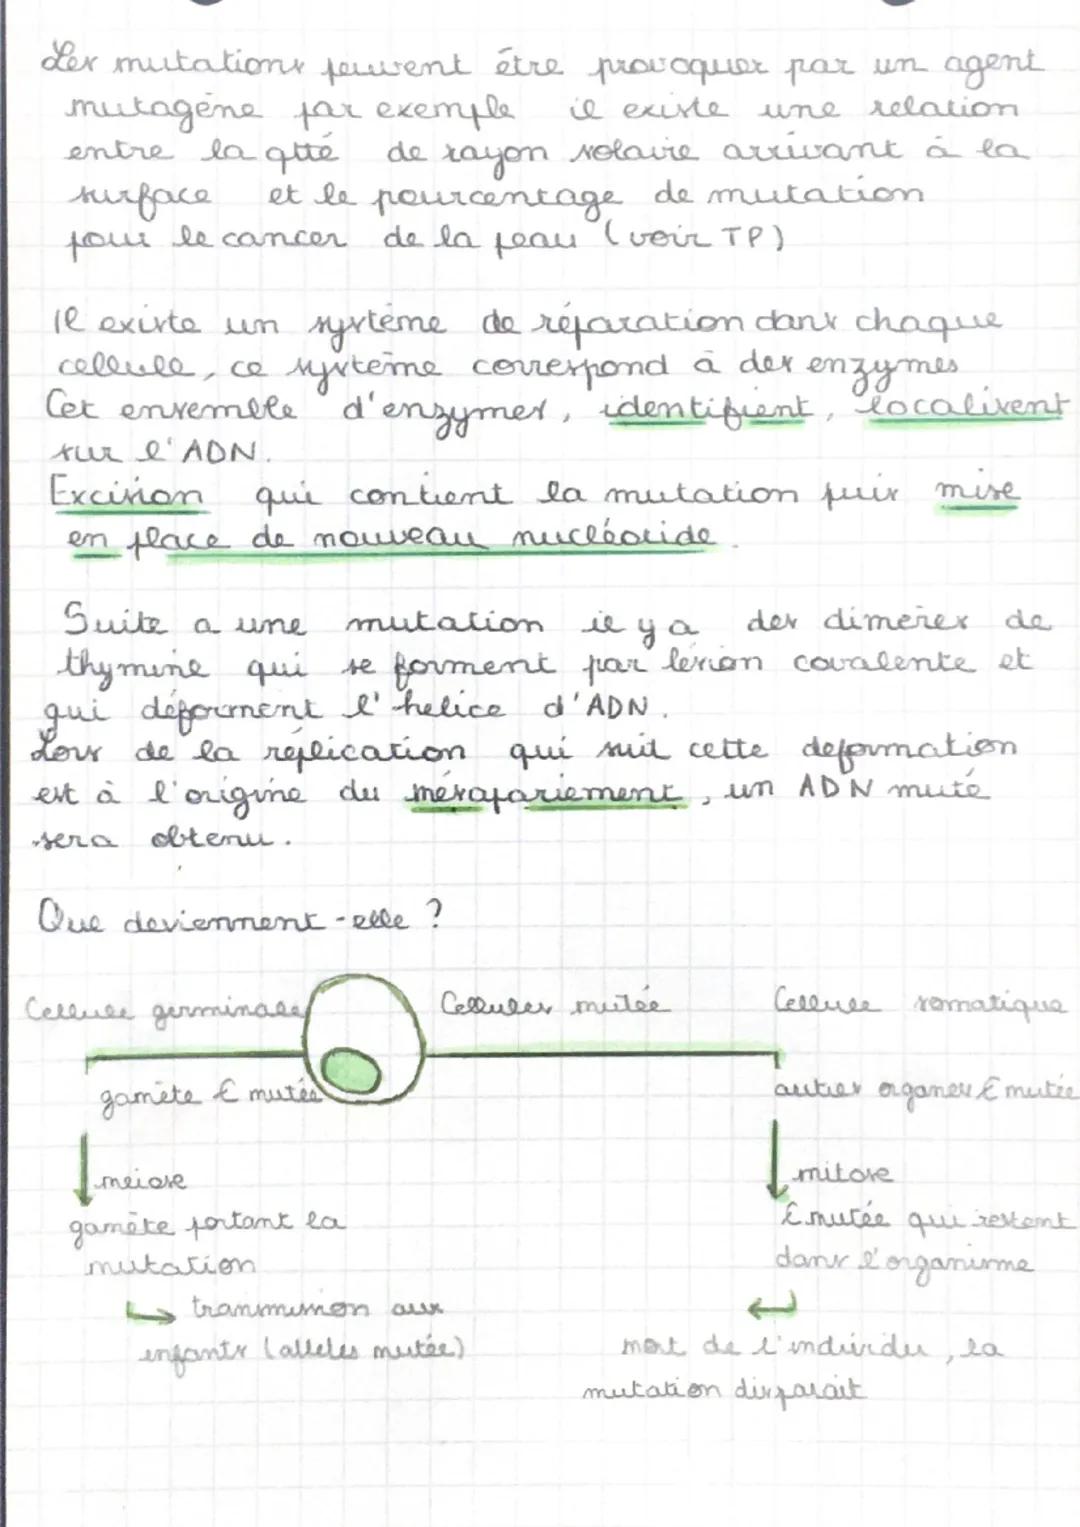 Les mutations peuvent être provoquer par un agent
mutagène par exemple il existe une relation
entre la qtté de rayon solaire arrivant à la
surface et le pourcentage de mutation
pour le cancer de la peau (voir TP)
Il existe un système de réparation dans chaque
cellule, ce système correspond à des enzymes
Cet ensemble d'enzymes, identifient, localisent
sur l'ADN.
Excision qui contient la mutation puis mise
en place de nouveau nucléotide.
Suite a une mutation il y a des dimères de
thymine qui se forment par lésion covalente et
qui déforment l'helice d'ADN.
Lors de la réplication qui suit cette deformation
est à l'origine du mésapariement, un ADN muté
sera obtenu.
Que deviennent-elle ?
Cellule germinales Cellules mutée Cellule somatique
gamète € mutée autres organes € mutée
meiose mitose
gamète portant la € mutée qui restent
mutation dans l'organisme
↳ transmission aux ↵
enfants (alleles mutée) mort de l'individu, la
mutation disparait